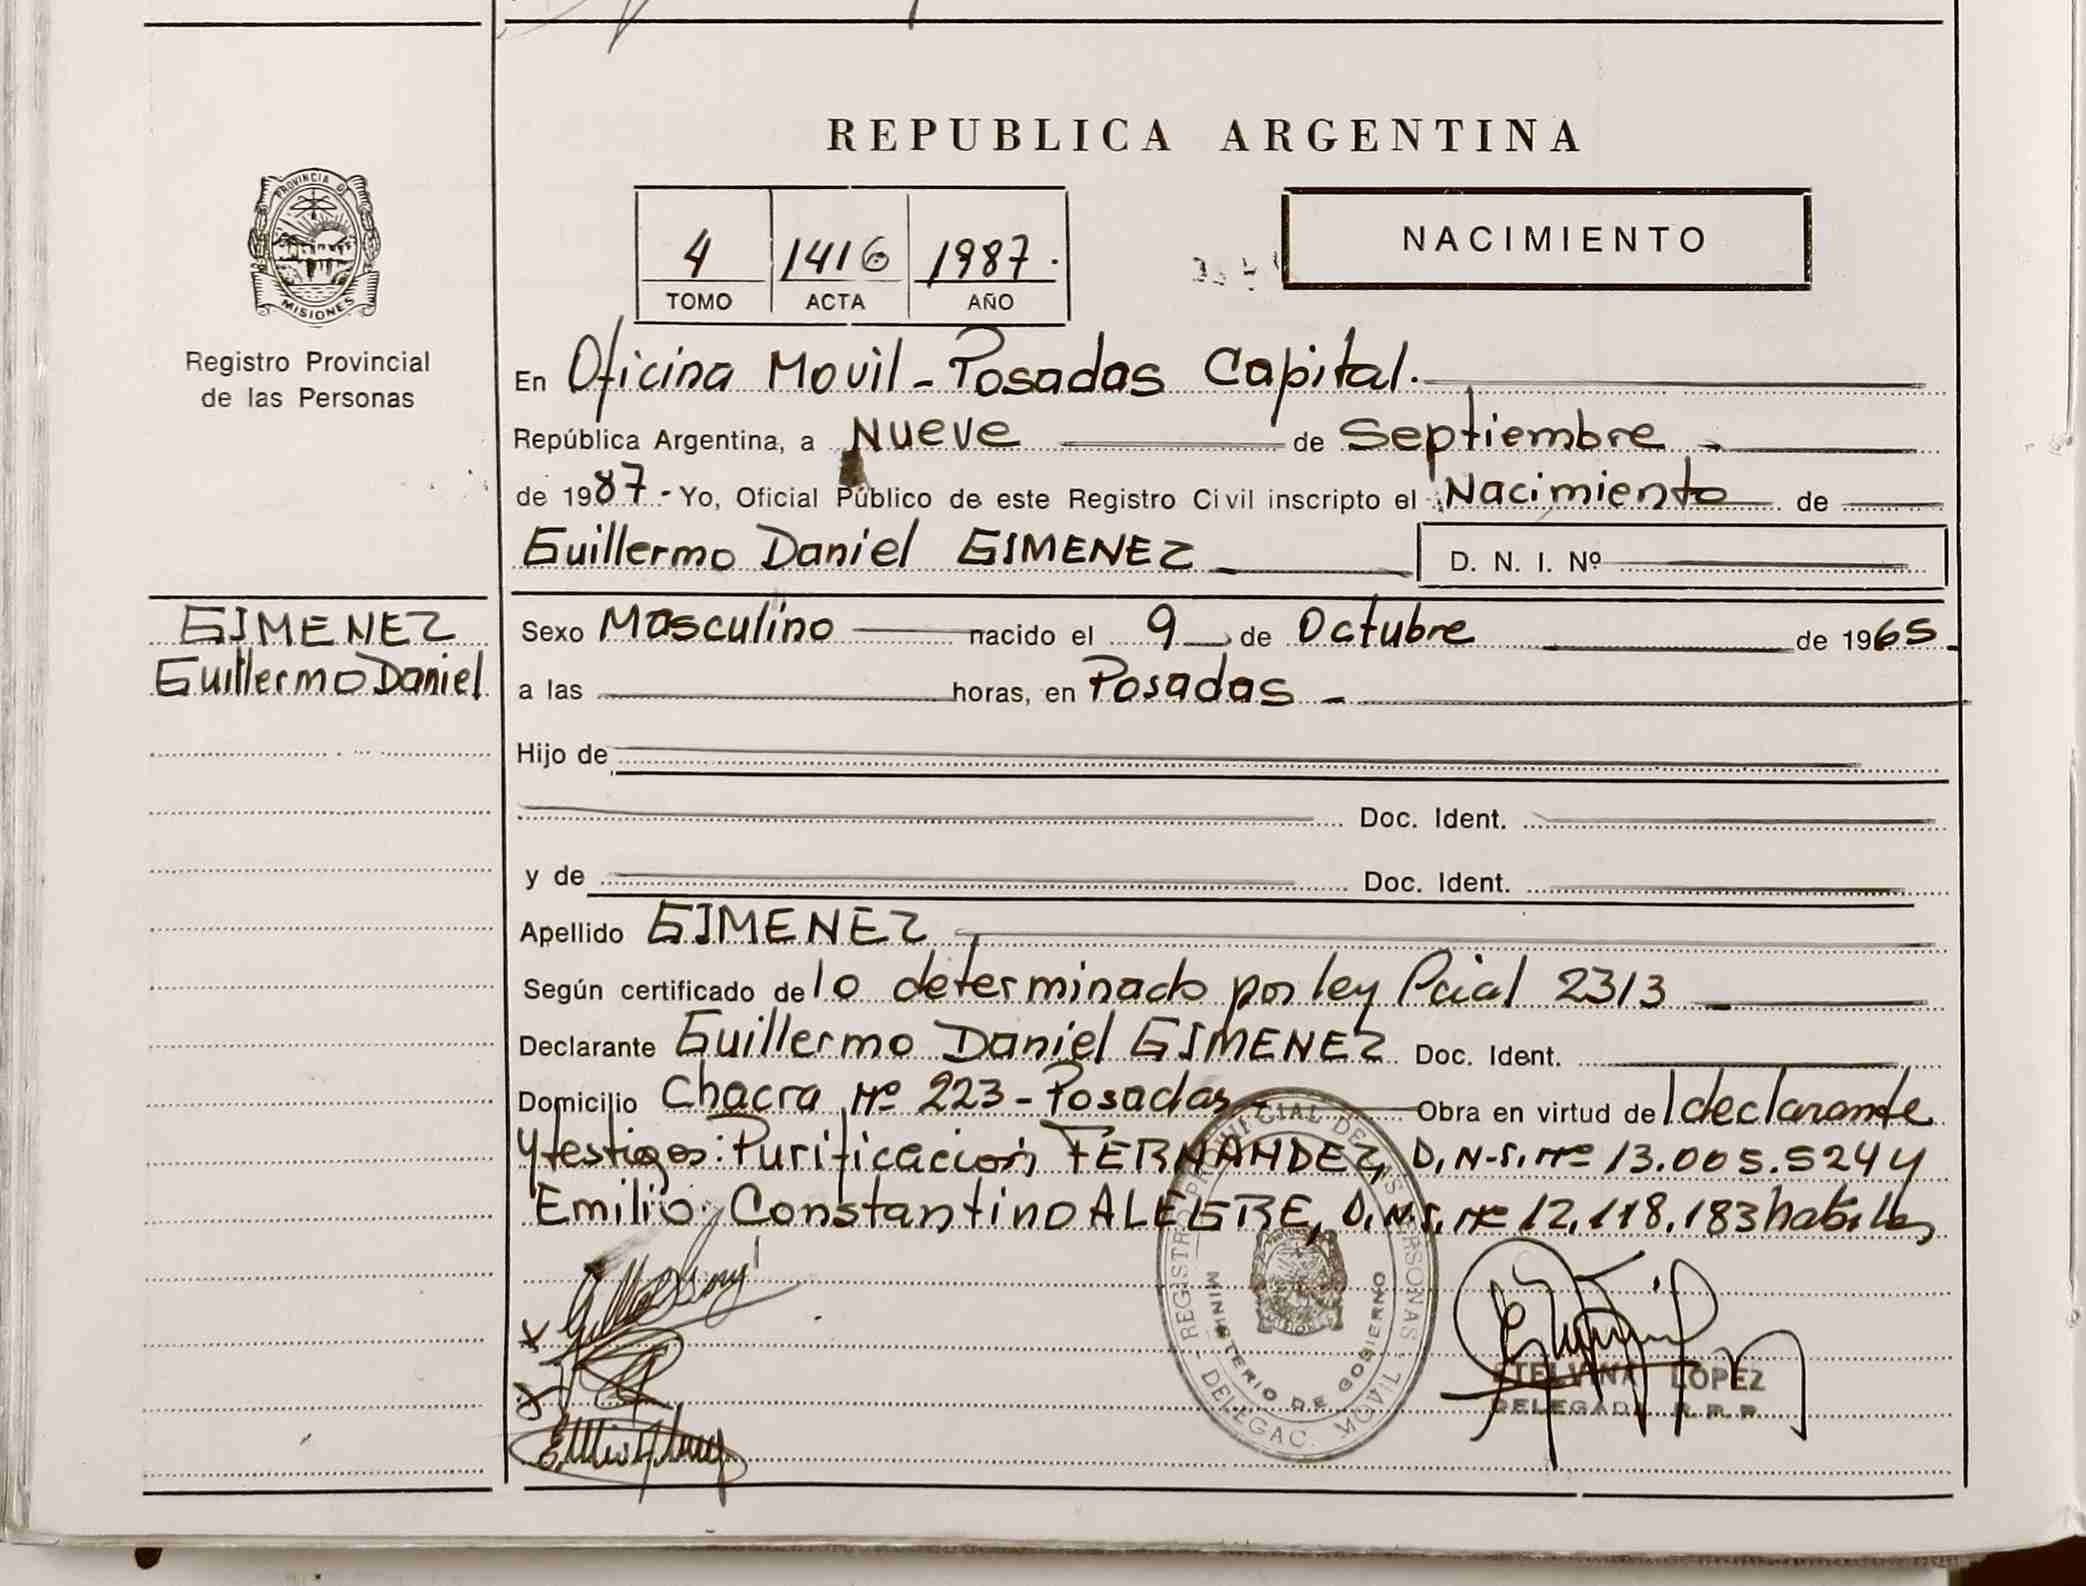 REPUBLICA ARGENTINA
PROVINCIA DE
MISIONES
Registro Provincial
de las Personas
4 1416 1987.
TOMO ACTA AÑO
NACIMIENTO
En Oficina Movil - Posadas Capital.
República Argentina, a Nueve de Septiembre
de 1987.- Yo, Oficial Público de este Registro Civil inscripto el Nacimiento de
Guillermo Daniel GIMENEZ D. N. I. Nº
GIMENEZ
Guillermo Daniel
Sexo Masculino nacido el 9 de Octubre de 1965
a las horas, en Posadas -
Hijo de
Doc. Ident.
y de Doc. Ident.
Apellido GIMENEZ
Según certificado de lo determinado por ley Pcial 2313
Declarante Guillermo Daniel GIMENEZ Doc. Ident.
Domicilio Chacra Nº 223 - Posadas - Obra en virtud del declarante
y testigos: Purificacion FERNANDEZ, D.N.I. Nº 13.005.524 y
Emilio Constantino ALEGRE, D.N.I. Nº 12.118.183 habiles
REGISTRO PROVINCIAL DE LAS PERSONAS
MINISTERIO DE GOBIERNO
DELEGAC. MOVIL
ETELVINA LOPEZ
DELEGADA R.P.P.